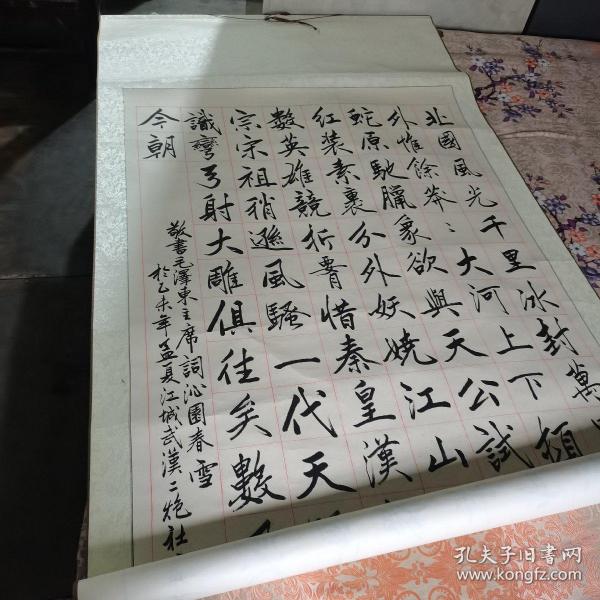 北國風光千里冰封萬
外惟餘莽〻大河上下頓
蛇原馳臘象欲與天公試
紅装素裹分外妖嬈江山
数英雄競折腰惜秦皇漢
宗宋祖稍遜風騷一代天
識彎弓射大雕俱往矣數
今朝
敬書毛澤東主席詞沁園春雪
於乙未年孟夏江城武漢二炮社
孔夫子旧书网
www.kongfz.com